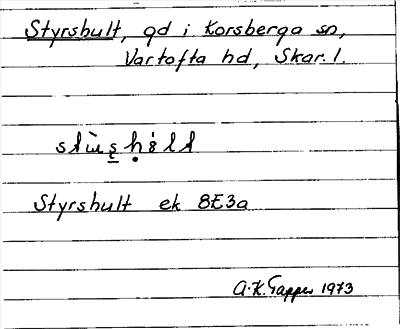 Styrshult, gd i Korsberga sn,
Vartofta hd, Skar. l.
Styrshult ek 8E3a
A.K. Tapper 1973